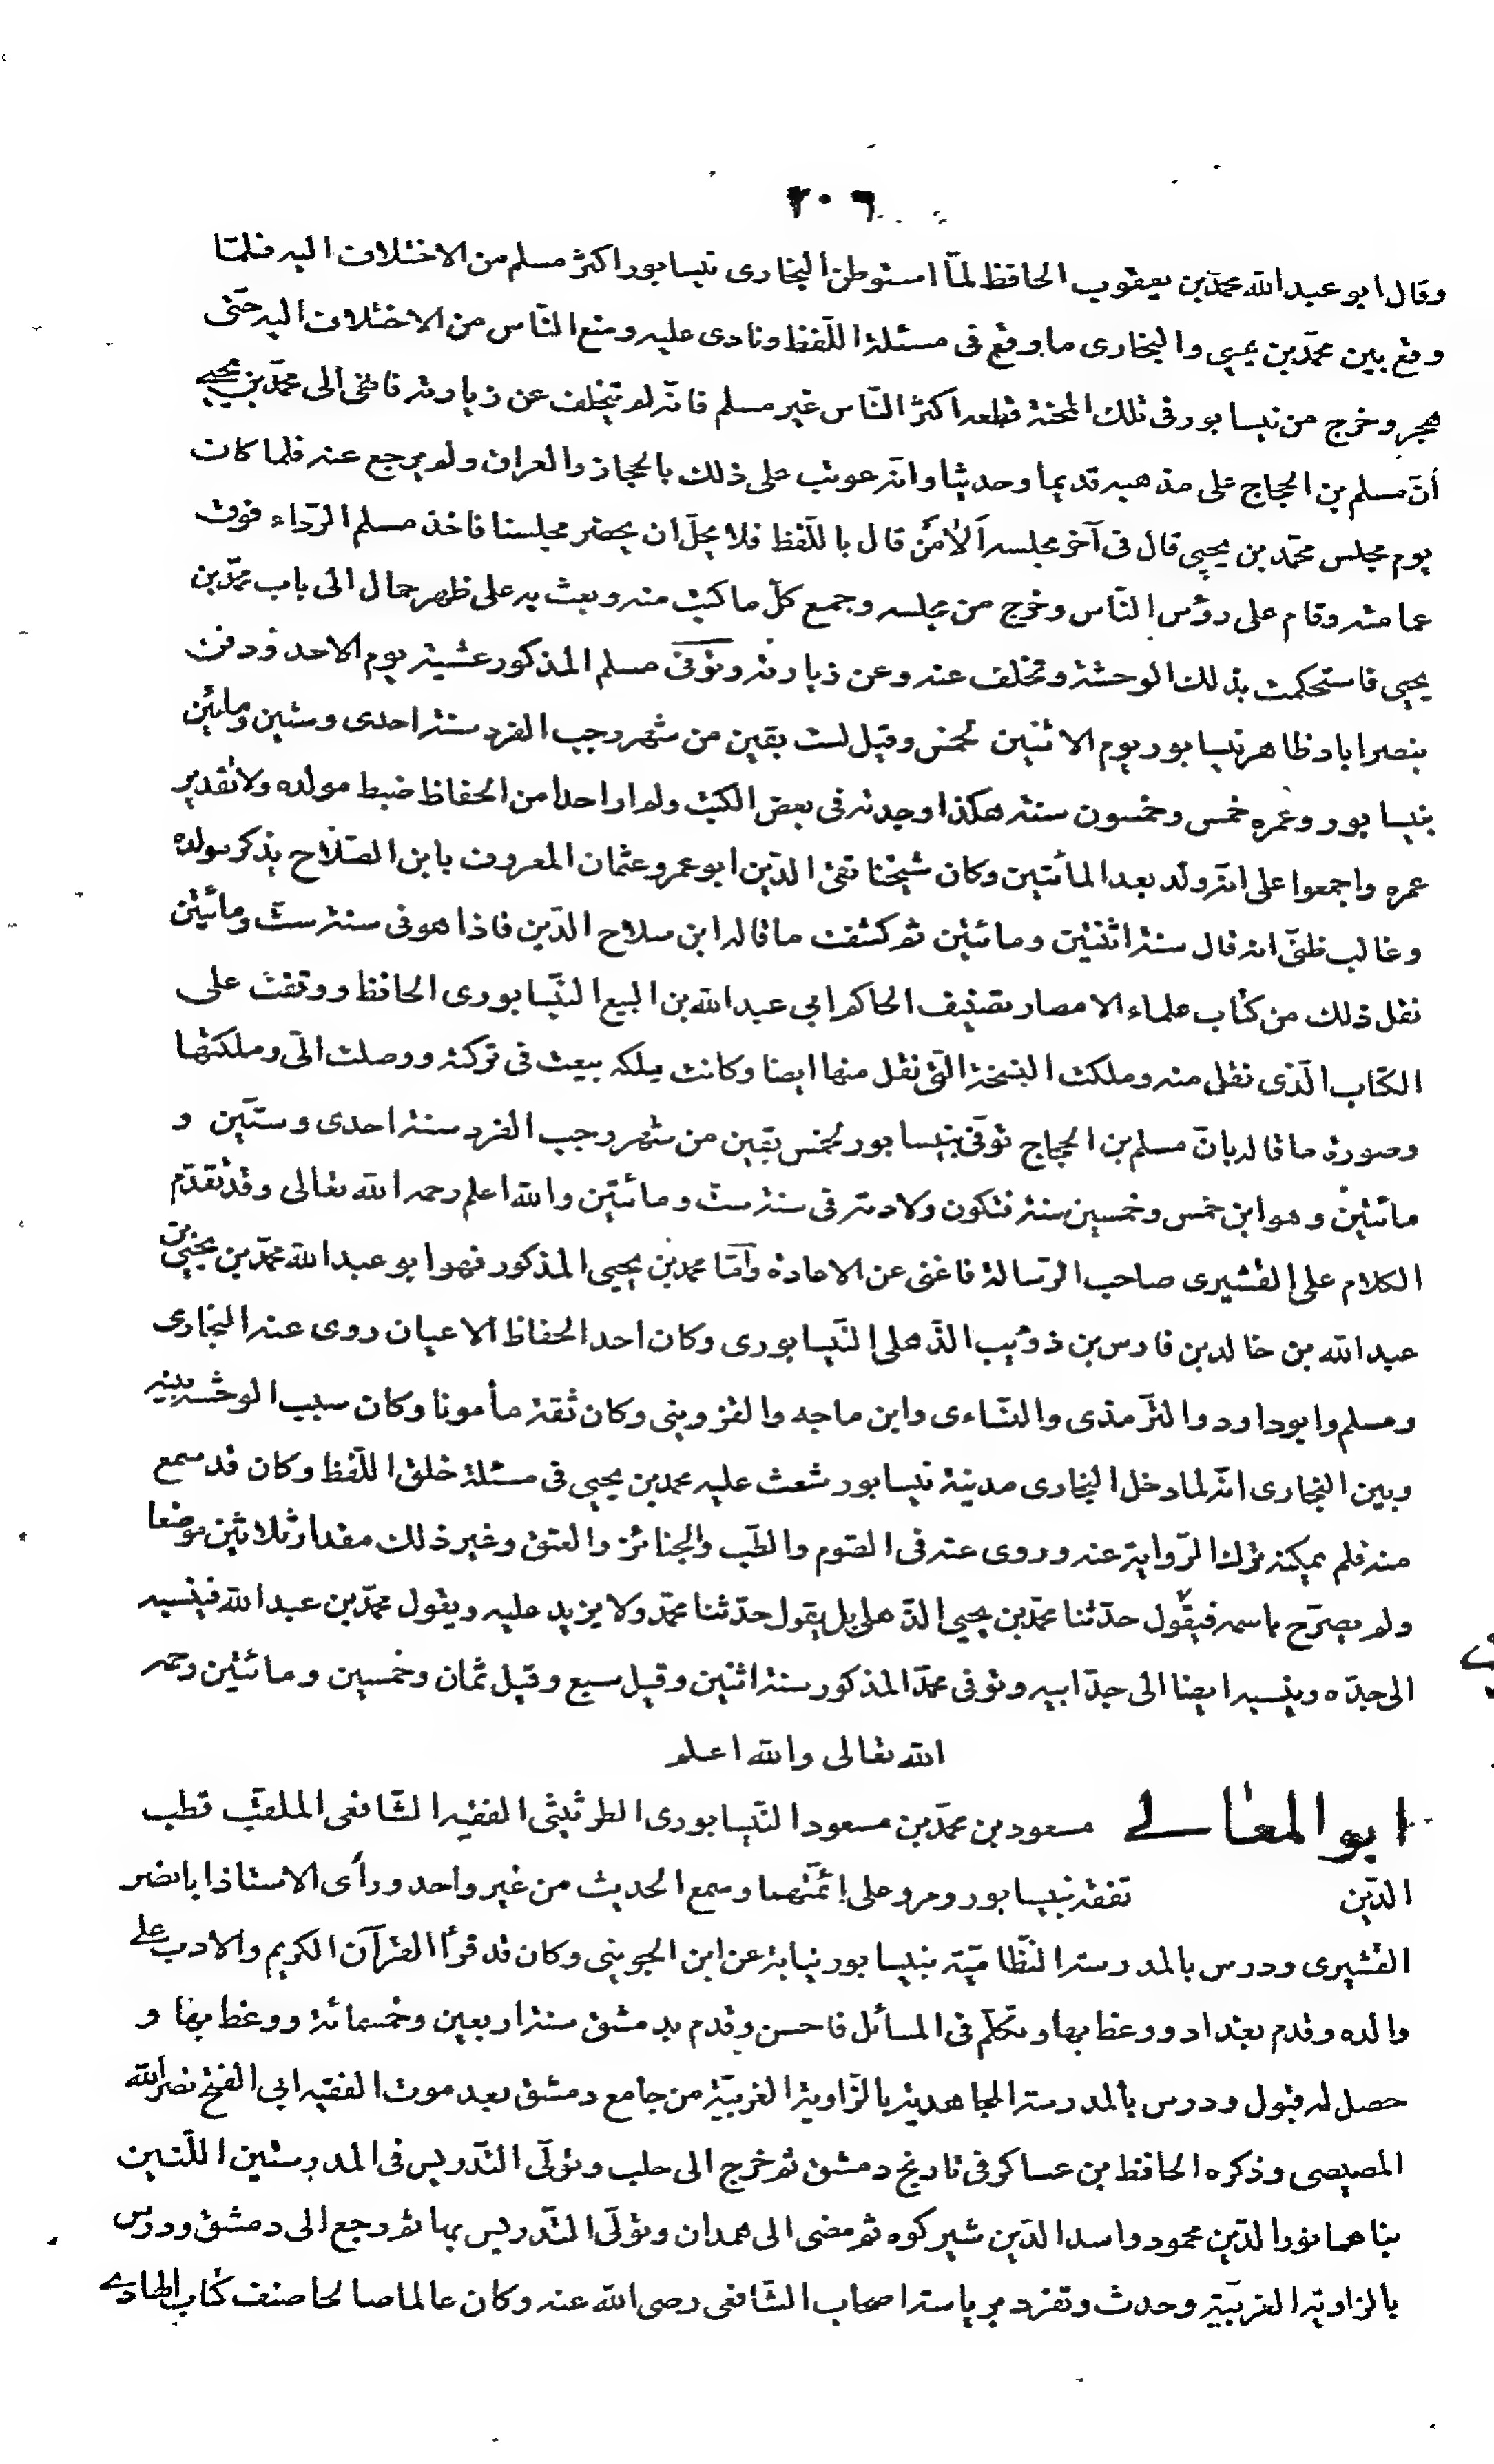 ٢٠٦
وقال ابو عبد الله محمّد بن يعقوب الحافظ لمّا استوطن البخارى نيسابور اكثر مسلم من الاختلاف اليه فلمّا
وقع بين محمّد بن يحيى والبخارى ما وقع فى مسئلة اللّفظ ونادى عليه ومنع النّاس من الاختلاف اليه حتّى
هجر وخرج من نيسابور فى تلك المحنة قطعه اكثر النّاس غير مسلم فانّه لم يتخلف عن زيارته فانهى الى محمّد بن يحيى
أنّ مسلم بن الحجاج على مذهبه قديما وحديثا وانّه عوتب على ذلك بالحجاز والعراق ولم يرجع عنه فلما كان
يوم مجلس محمّد بن يحيى قال فى آخر مجلسه اَلَا مَنْ قال باللّفظ فلا يحلّ ان يحضر مجلسنا فاخذ مسلم الرّداء فوق
عمامته وقام على رؤس النّاس وخرج من مجلسه وجمع كلّ ما كتب منه وبعث به على ظهر حمال الى باب محمّد بن
يحيى فاستحكمت بذلك الوحشة وتخلف عنه وعن زيارته وتوّفى مسلم المذكور عشية يوم الاحد ودفن
بنصراباد ظاهر نيسابور يوم الاثنين لخمس وقيل لست بقين من شهر رجب الفرد سنة احدى وستين ومائين
بنيسابور وعمره خمس وخمسون سنة هكذا وجدته فى بعض الكتب ولم ار احدا من الحفاظ ضبط مولده ولا تقدير
عمره واجمعوا على انّه ولد بعد المأتين وكان شيخنا تقى الدّين ابو عمرو عثمان المعروف بابن الصّلاح يذكر مولده
وغالب ظنّى انه قال سنة اثنتين ومائتين ثم كشفت ما قاله ابن سلاح الدّين فاذا هو فى سنة ستّ ومائتين
نقل ذلك من كتاب علماء الامصار تصنيف الحاكم ابي عبد الله بن البيع النّيسابورى الحافظ ووقفت على
الكتاب الّذى نقل منه وملكت النسخة الّتى نقل منها ايضا وكانت ملكه بيعت فى تركته ووصلت الىّ وملكتها
وصورة ما قاله بانّ مسلم بن الحجاج توفّى بنيسابور لخمس بقين من شهر رجب الفرد سنة احدى وستّين و
مائتين وهو ابن خمس وخمسين سنة فتكون ولادته فى سنة ستّ ومائتين والله اعلم رحمه الله تعالى وقد تقدّم
الكلام على القشيرى صاحب الرّسالة فاغنى عن الاعادة وأمّا محمد بن يحيى المذكور فهو ابو عبد الله محمّد بن يحيى بن
عبد الله بن خالد بن فارس بن ذوئيب الذّهلى النّيسابورى وكان احد الحفاظ الاعيان روى عنه البخارى
ومسلم وابوداود والتّرمذى والنّساءى وابن ماجه والقزوينى وكان ثقة مأمونا وكان سبب الوحشة بينه
وبين البخارى انّه لما دخل البخارى مدينة نيسابور شعث عليه محمد بن يحيى فى مسئلة خلق اللّفظ وكان قد سمع
منه فلم يمكنه ترك الرّواية عنه وروى عنه فى الصّوم والطّب والجنائز والعتق وغير ذلك مقدار ثلاثين موضعا
ولم يصرّح باسمه فيقول حدّثنا محمّد بن يحيى الذّهلى بل يقول حدّثنا محمّد ولا يزيد عليه ويقول محمّد بن عبد الله فينسبه
الى جدّه وينسبه ايضا الى جدّ ابيه وتوفى محمّد المذكور سنة اثنين وقيل سبع وقيل ثمان وخمسين ومائتين رحمه
الله تعالى والله اعلم
ابو المعالے مسعود بن محمّد بن مسعود النّيسابورى الطرثيثى الفقيه الشّافعى الملقّب قطب
الدّين تفقه بنيسابور ومرو على ائمّتهما وسمع الحديث من غير واحد ورأى الاستاذ ابا نصر
القشيرى ودرس بالمدرسة النّظاميّة بنيسابور نيابة عن ابن الجوينى وكان قد قرأ القرآن الكريم والادب على
والده وقدم بغداد ووعظ بها وتكلّم فى المسائل فاحسن وقدم بدمشق سنة اربعين وخمسمائة ووعظ بها و
حصل له قبول ودرس بالمدرسة المجاهدية بالزّاوية الغربيّة من جامع دمشق بعد موت الفقيه ابى الفتح نصر الله
المصيصى وذكره الحافظ بن عساكر فى تاريخ دمشق ثم خرج الى حلب وتولّى التّدريس فى المدرستين اللّتين
بناهما نور الدّين محمود واسد الدّين شيركوه ثم مضى الى همدان وتولّى التّدريس بها ثم رجع الى دمشق ودرس
بالزاوية الغربيّة وحدث وتفرد برياسة اصحاب الشّافعى رضى الله عنه وكان عالما صالحا صنف كتاب الهادے